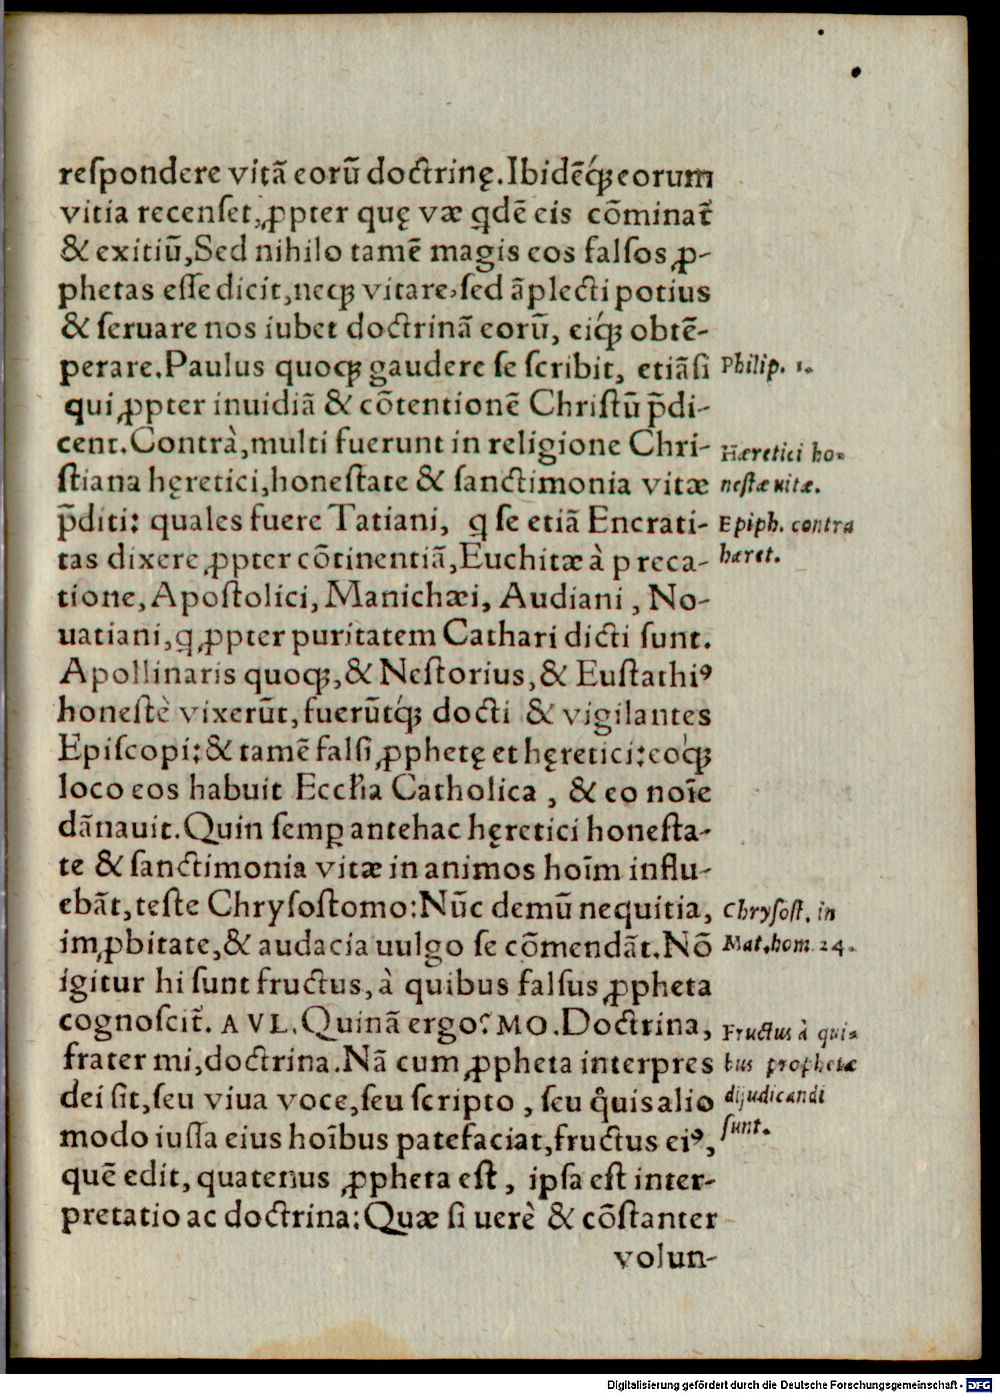 reſpondere vitã eorũ doctrinę. Ibidẽq́ꝫ eorum
vitia recenſet, ꝓpter quę væ qdẽ eis cõminat᷑
& exitiũ, Sed nihilo tamẽ magis eos falſos ꝓ-
phetas eſſe dicit, neqꝫ vitare, ſed ãplecti potius
& ſeruare nos iubet doctrinã eorũ, eiq́ꝫ obtẽ-
perare. Paulus quoqꝫ gaudere ſe ſcribit, etiãſi
Philip. 1.
qui ꝓpter inuidiã & cõtentionẽ Chriſtũ p̃di-
cent. Contrà, multi fuerunt in religione Chri-
Hæretici ho-
ſtiana hęretici, honeſtate & ſanctimonia vitæ
neſtæ uitæ.
p̃diti: quales fuere Tatiani, q ſe etiã Encrati-
Epiph. contra
tas dixere ꝓpter cõtinentiã, Euchitæ à preca-
hæret.
tione, Apoſtolici, Manichæi, Audiani, No-
uatiani, q ꝓpter puritatem Cathari dicti ſunt.
Apollinaris quoqꝫ, & Neſtorius, & Euſtathiꝰ
honeſtè vixerũt, fuerũtq́ꝫ docti & vigilantes
Epiſcopi: & tamẽ falſi ꝓphetę et hęretici: eoq́ꝫ
loco eos habuit Eccľia Catholica, & eo noĩe
dãnauit. Quin ſemꝑ antehac hęretici honeſta-
te & ſanctimonia vitæ in animos hoĩm influ-
ebãt, teſte Chryſoſtomo: Nũc demũ nequitia,
Chryſoſt. in
imꝓbitate, & audacia uulgo ſe cõmendãt. Nõ
Mat. hom. 24.
igitur hi ſunt fructus, à quibus falſus ꝓpheta
cognoſcit᷑. AVL. Quinã ergo? MO. Doctrina,
Fructus à qui-
frater mi, doctrina. Nã cum ꝓpheta interpres
bus prophetæ
dei ſit, ſeu viua voce, ſeu ſcripto, ſeu qͦuis alio
dijudicandi
modo iuſſa eius hoĩbus patefaciat, fructus eiꝰ,
ſunt.
quẽ edit, quatenus ꝓpheta eſt, ipſa eſt inter-
pretatio ac doctrina: Quæ ſi uerè & cõſtanter
volun-
Digitalisierung gefördert durch die Deutsche Forschungsgemeinschaft - DFG